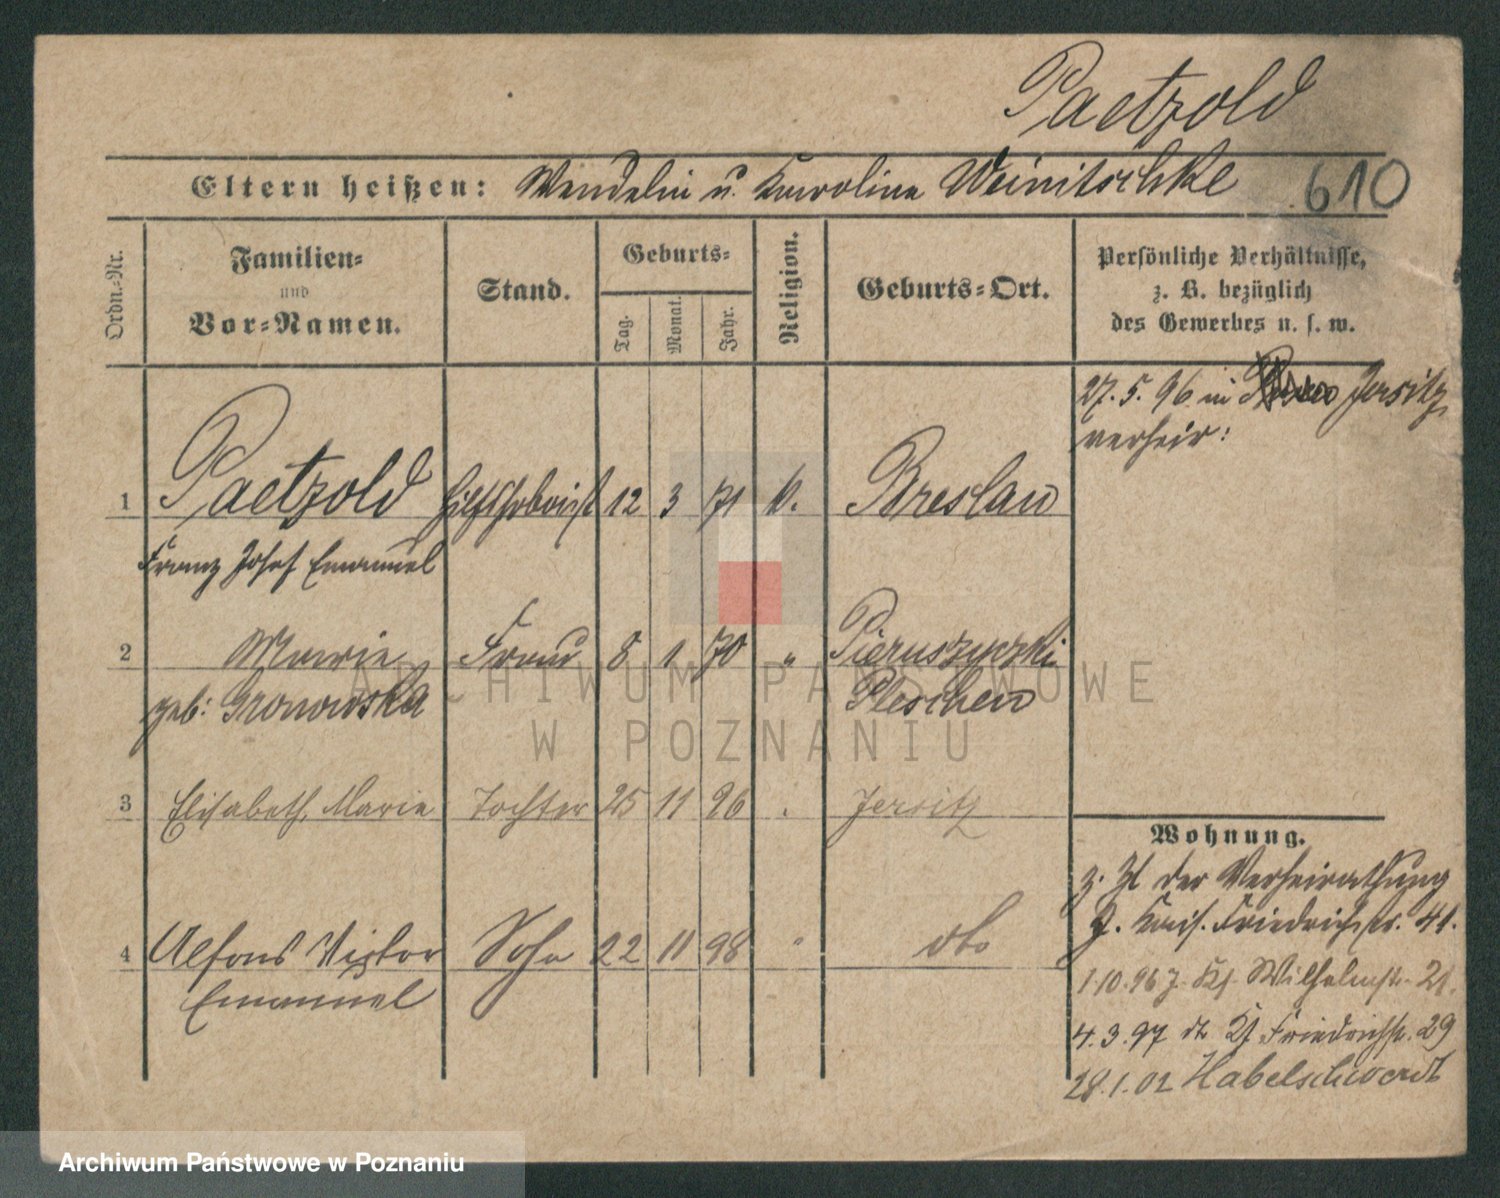 Paetzold
Eltern heißen: Wendelin u. Karoline Weinitschke 610
Ordn.-Nr.
Familien-
und
Vor-Namen.
Stand.
Geburts-
Tag.
Monat.
Jahr.
Religion.
Geburts-Ort.
Persönliche Verhältnisse,
z. B. bezüglich
des Gewerbes u. s. w.
27. 5. 96 in Jersitz
verheir:
1 Paetzold 12 3 71 k. Breslau
Franz Josef Emanuel
2 Marie Frau 8 1 70 " Pieruszyczki
geb: Gronowska Pleschen
3 Elisabeth, Marie Tochter 25 11 96 Jersitz
Wohnung.
z. Zt der Verheirathung
J. Kais. Friedrichstr. 41.
4 Alfons Victor Sohn 22 11 98 " dto
Emanuel
1.10.96 J. Ks. Wilhelmstr. 21.
4.3.97 dto Ks Friedrichstr. 29
28.1.02 Habelschwerdt
ARCHIWUM PAŃSTWOWE
W POZNANIU
Archiwum Państwowe w Poznaniu